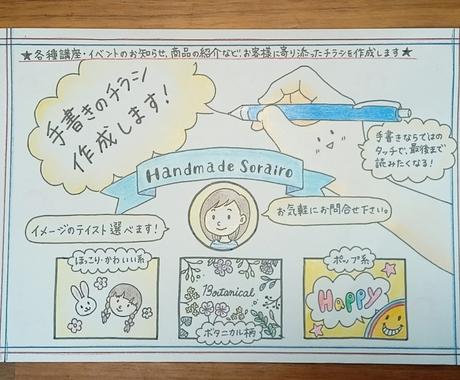 ★各種講座・イベントのお知らせ、商品の紹介など、お客様に寄り添ったチラシを作成します★
手書きのチラシ
作成します!
手書きならではの
タッチで、最後まで
読みたくなる!
Handmade Sorairo
イメージのテイスト選べます!
お気軽にお問合せ下さい。
ほっこり・かわいい系
Botanical
ボタニカル柄
ポップ系
HAPPY